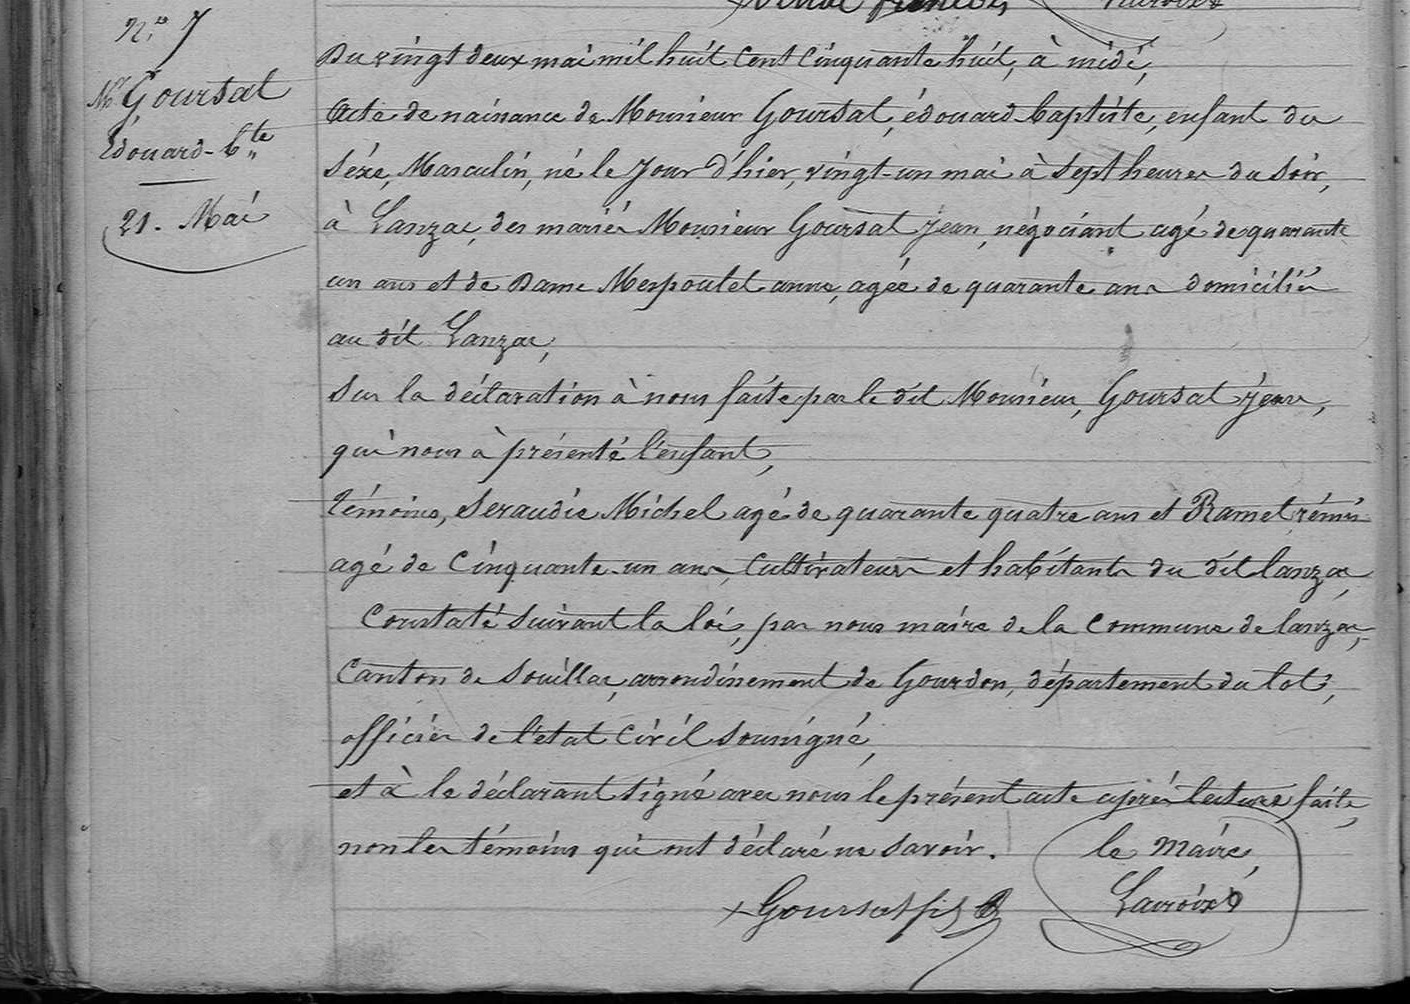 N.º 7
Mr Goursat
Édouard-Bte
21. Mai
Du vingt deux mai mil huit cent cinquante huit, à midi,
acte de naissance de Monsieur Goursat, édouard baptiste, enfant du
séxe, Masculin, né le jour d'hier, vingt-un mai à sept heures du soir,
à Lanzac, des mariés Monsieur Goursat jean, négociant agé de quarante
un ans et de Dame Mespoulet anne, agée de quarante ans domiciliés
au dit Lanzac,
Sur la déclaration à nous faite par le dit Monsieur, Goursat jean,
qui nous à présenté l'enfant,
témoins, Seraudie Michel agé de quarante quatre ans et Ramet rémis
agé de cinquante-un ans, cultivateurs et habitants du dit lanzac,
Constaté suivant la loi, par nous maire de la commune de lanzac,
Canton de Souillac, arrondissement de Gourdon, département du lot,
officier de l'état civil soussigné,
et à le déclarant signé avec nous le présent acte après lecture faite,
non les témoins qui ont déclaré ne savoir.
le Maire,
Goursat fils
Lacroix